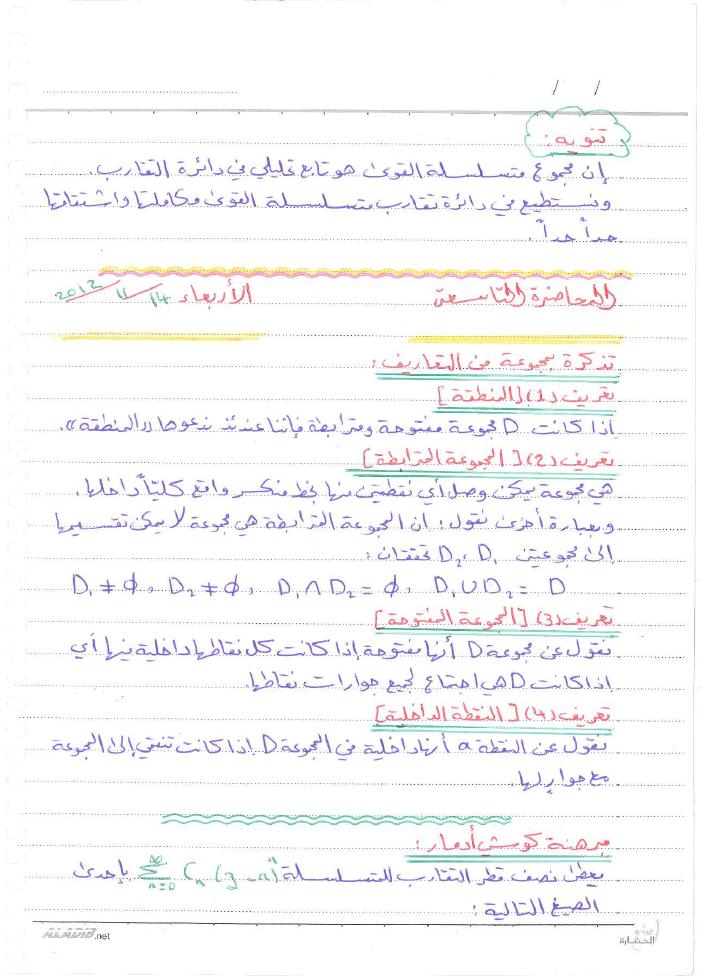 / /
تنويه:
إن مجموع متسلسلة القوى هو تابع تحليلي في دائرة التقارب.
ونستطيع في دائرة تقارب متسلسلة القوى مكاملتها واشتقاقها
حداً حداً.
المحاضرة التاسعة الأربعاء 14/11/2012
تذكرة بمجموعة من التعاريف:
تعريف (1) [المنطقة]
إذا كانت D مجموعة مفتوحة ومترابطة فإننا عندئذ ندعوها «المنطقة».
تعريف (2) [المجموعة المترابطة]
هي مجموعة يمكن وصل أي نقطتين منها بخط منكسر واقع كلياً داخلها.
وبعبارة أخرى نقول: ان المجموعة المترابطة هي مجموعة لا يمكن تقسيمها
إلى مجموعتين D₁، D₂ تحققان:
D₁ ≠ ϕ, D₂ ≠ ϕ, D₁ ∩ D₂ = ϕ, D₁ ∪ D₂ = D
تعريف (3) [المجموعة المفتوحة]
نقول عن مجموعة D أنها مفتوحة إذا كانت كل نقاطها داخلية فيها أي
اذا كانت D هي اجتماع لجميع جوارات نقاطها.
تعريف (4) [النقطة الداخلية]
نقول عن النقطة a أنها داخلية في المجموعة D اذا كانت تنتمي إلى المجموعة
مع جوار لها.
مبرهنة كوشي أدمار:
يعطى نصف قطر التقارب للمتسلسلة ∑_{n=0}^{∞} Cₙ (z-a)ⁿ بإحدى
الصيغ التالية:
ALADIB.net الحضارة